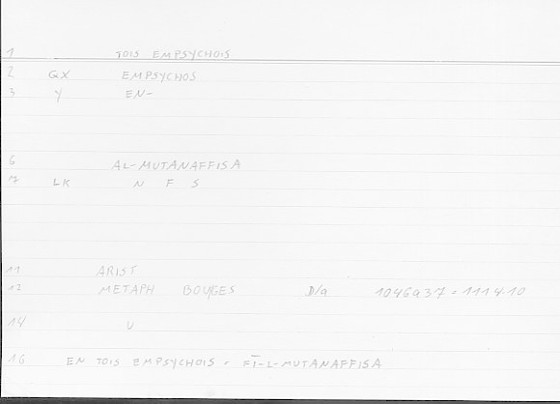 1 TOIS EMPSYCHOIS
2 GX EMPSYCHOS
3 Y EN-
6 AL-MUTANAFFISA
7 LK N F S
11 ARIST
12 METAPH BOUGES D/a 1046a37 = 1114.10
14 U
16 EN TOIS EMPSYCHOIS = FĪ-L-MUTANAFFISA